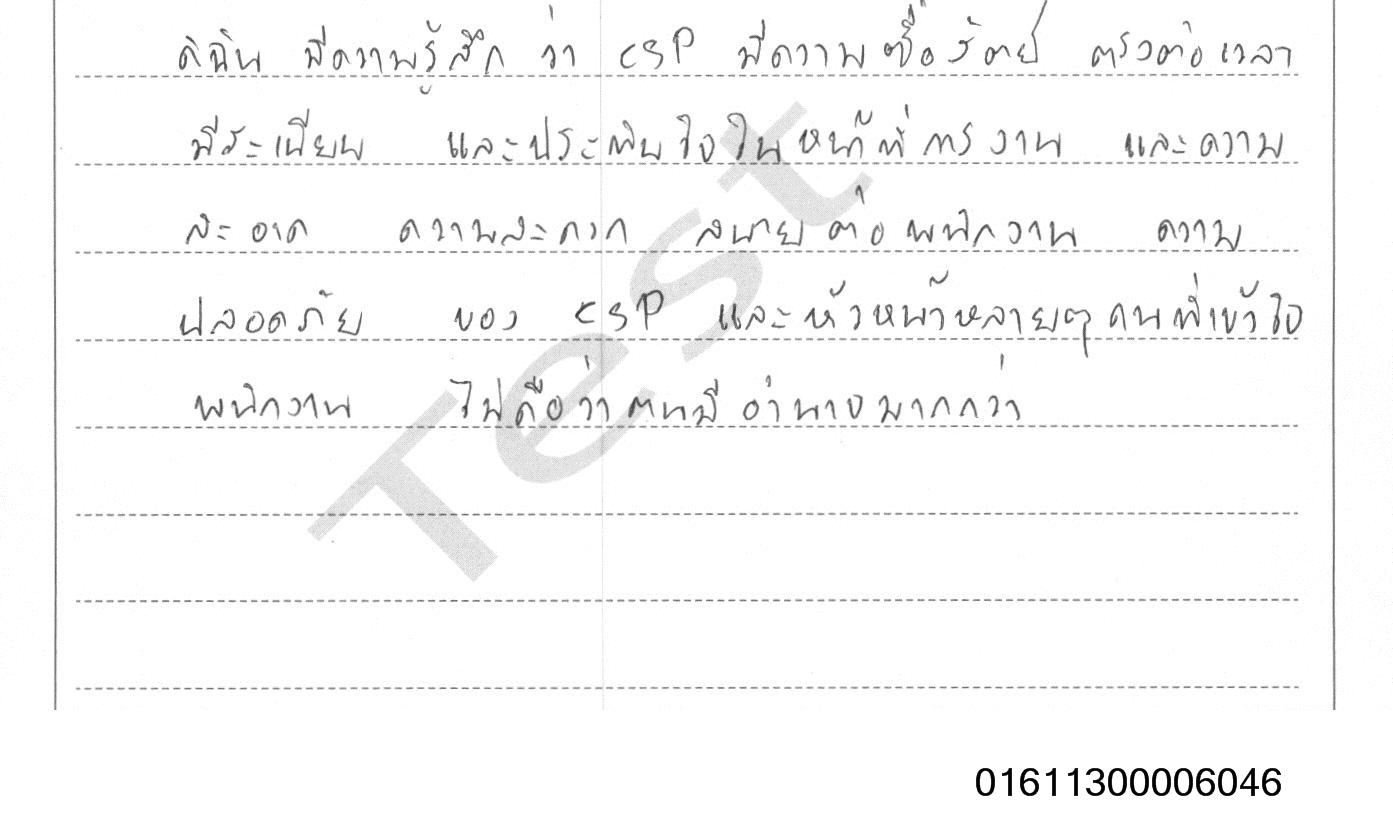 ดิฉัน มีความรู้สึก ว่า CSP มีความซื่อสัตย์ ตรงต่อเวลา
มีระเบียบ และประทับใจในหน้าที่การงาน และความ
สะอาด ความสะดวก สบายต่อพนักงาน ความ
ปลอดภัย ของ CSP และหัวหน้าหลายๆคนที่เข้าใจ
พนักงาน ไม่ถือว่าตนมีอำนาจมากกว่า
Test
01611300006046